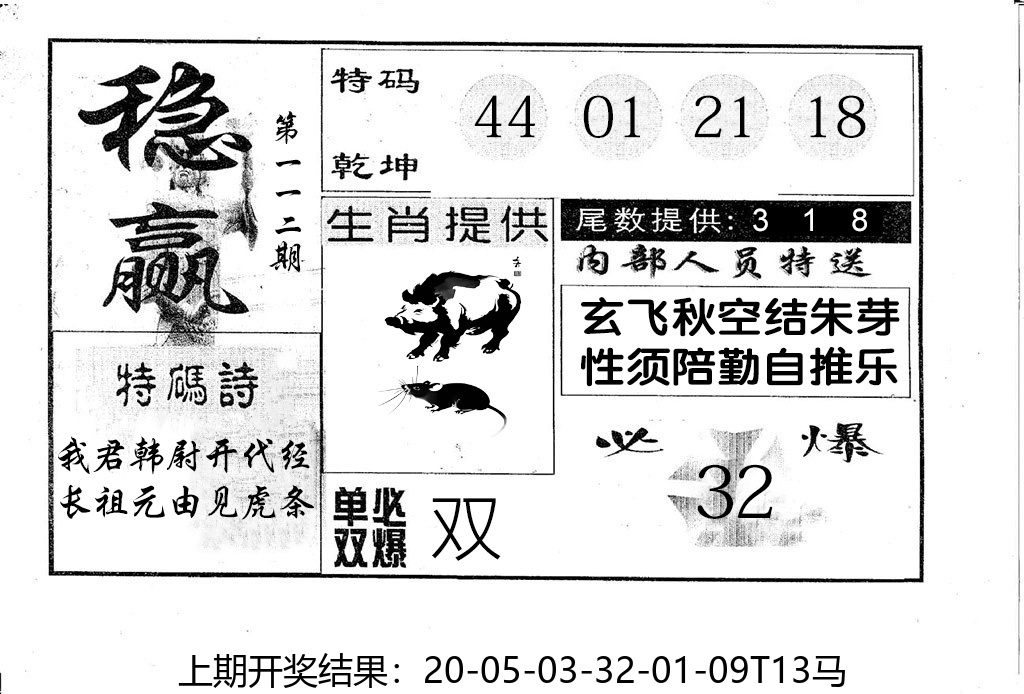 稳赢
第一一二期
特码
乾坤
44 01 21 18
生肖提供
尾数提供: 3 1 8
内部人员特送
玄飞秋空结朱芽
性须陪勤自推乐
特碼詩
我君韩尉开代经
长祖元由见虎条
必 爆
32
单双
必爆
双
上期开奖结果：20-05-03-32-01-09T13马